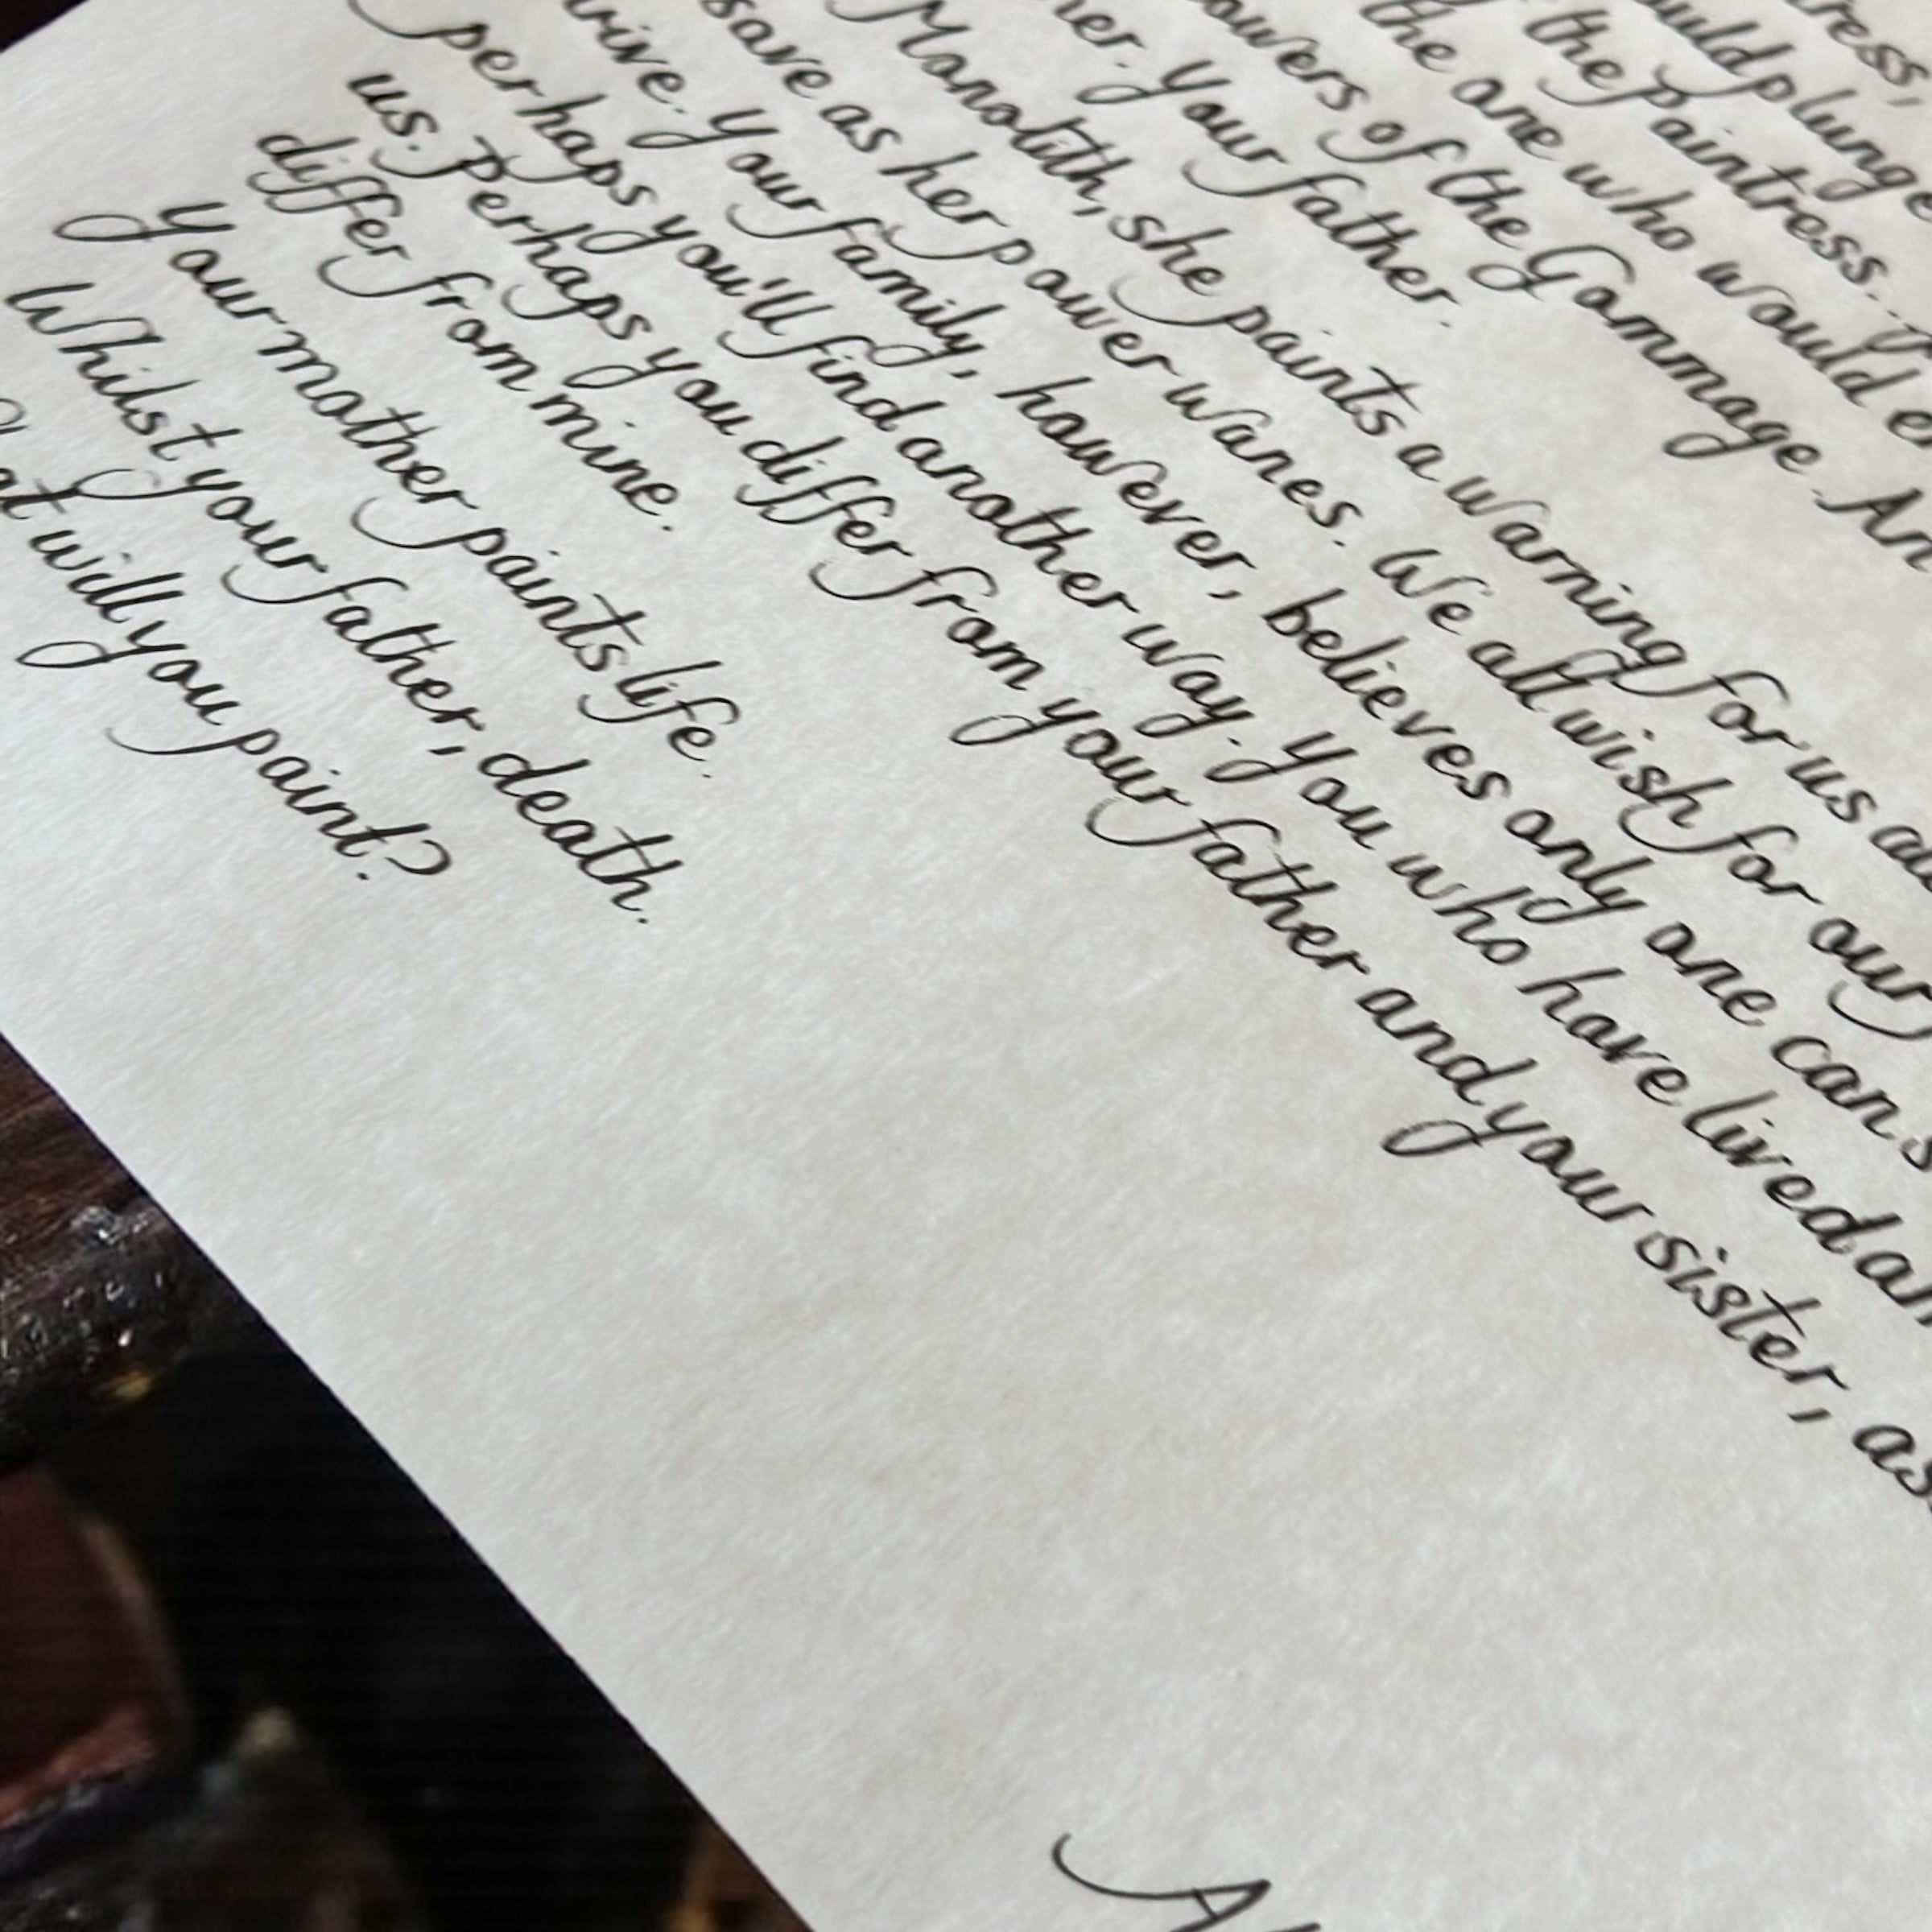 the Paintress.
the one who would
of the Gommage. An
Your father.
Monolith, she paints a warning for us
save as her power wanes. We all wish for our
Your family, however, believes only one can
perhaps you'll find another way. You who have lived
us. Perhaps you differ from your father and your sister,
differ from mine.
Your mother paints life.
Whilst your father, death.
will you paint?